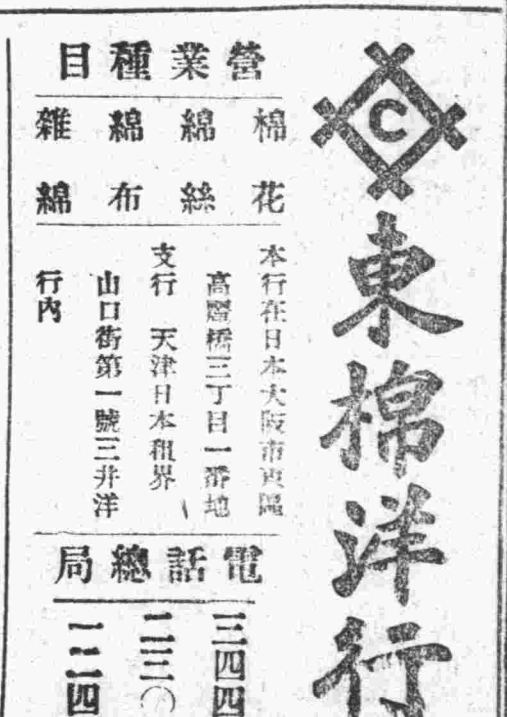 C
東棉洋行
營業種目
棉花
綿絲
綿布
雜綿
本行在日本大阪市東區
高麗橋三丁目一番地
支行 天津日本租界
山口街第一號三井洋
行內
電話總局
三四四
二三〇
一二四